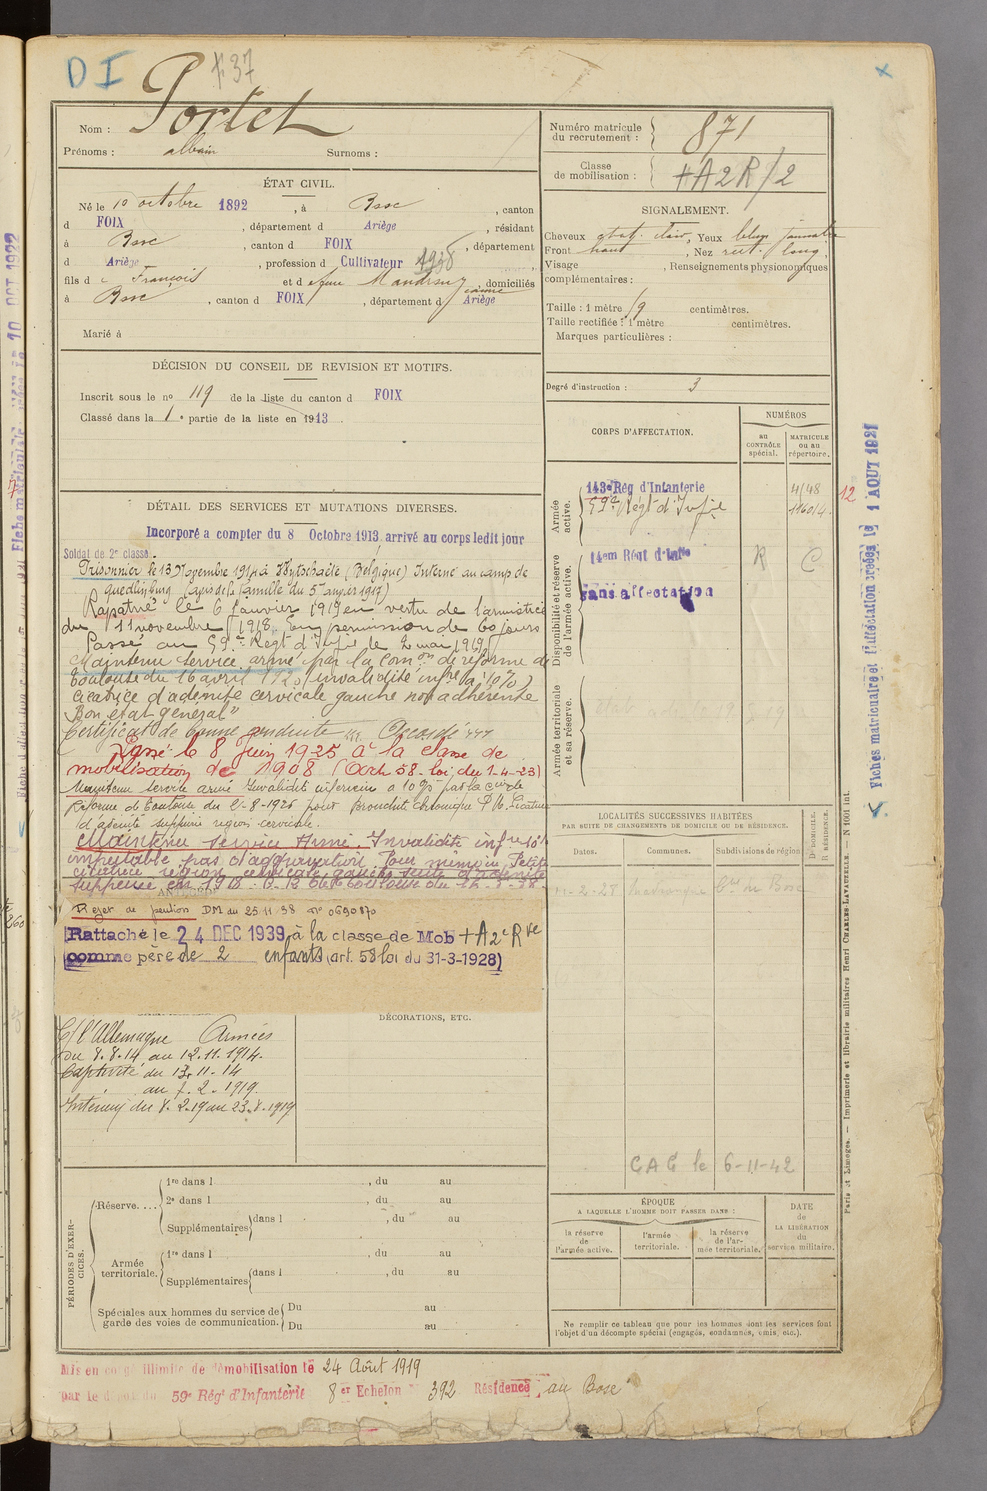 DI
37
Nom : Portet
Prénoms : albain Surnoms :
ÉTAT CIVIL.
Né le 10 octobre 1892, à Bosc, canton
d FOIX, département d Ariège, résidant
à Bosc, canton d FOIX, département
d Ariège, profession d Cultivateur
fils d e François et d e feue Jeanne, domiciliés
à Bosc, canton d FOIX, département d Ariège
Marié à
DÉCISION DU CONSEIL DE REVISION ET MOTIFS.
Inscrit sous le no 119 de la liste du canton d FOIX
Classé dans la 1e partie de la liste en 1913
DÉTAIL DES SERVICES ET MUTATIONS DIVERSES.
Incorporé a compter du 8 Octobre 1913 arrivé au corps ledit jour
Soldat de 2e classe.
Prisonnier le 13 Novembre 1914 à Wytschaete (Belgique) Interné au camp de
Quedlinburg (avis de la famille du 5 1917)
Rapatrié le 6 Janvier 1919 en vertu de l'armistice
du 11 novembre 1918. En permission de 60 jours
Passé au 59e Régt d'Infie le 2 mai 1919
Maintenu service armé par la Comon de réforme de
Toulouse du 16 avril 1920 (invalidité infre à 10%)
cicatrice d'adénite cervicale gauche non adhérente
Bon état général"
Certificat de bonne conduite Accordé
Passé le 8 Juin 1925 à la classe de
mobilisation de 1908 (Art 58 - loi du 1-4-23)
Maintenu service armé Invalidité inférieure a 10% par la
Réforme de Toulouse du 2-8-1926 pour Bronchite chronique Cicatrice
d'adénite suppurée region cervicale.
Maintenu service Armé. Invalidité infre 10%
imputable pas d'aggravation. Pour mémoire, Petite
cicatrice région cervicale gauche suite d'adénite
suppurée en 1918.
Rejet de pension DM du 25 11 38 no 0690870
Rattaché le 24 DEC 1939 à la classe de Mob +A2e Rve
comme père de 2 enfants (art. 58 loi du 31-3-1928)
DÉCORATIONS, ETC.
C/ l'Allemagne Armées
du 8.8.14 au 12.11.1914.
Captivité du 13.11.14
au 7.2.1919
Intérieur du 8.2.19 au 23.8.1919
PÉRIODES D'EXERCICES.
Réserve....
1re dans l , du au
2e dans l , du au
Supplémentaires dans l , du au
Armée territoriale.
1re dans l , du au
Supplémentaires dans l , du au
Spéciales aux hommes du service de garde des voies de communication.
Du au
Du au
Mis en congé illimité de démobilisation le 24 Août 1919
par le dépôt du 59e Régt d'Infanterie 8er Echelon 392 Résidence au Bosc
Numéro matricule du recrutement : 871
Classe de mobilisation : +A2R/2
SIGNALEMENT.
Cheveux chat. clair, Yeux bleus
Front haut, Nez rect. long.
Visage , Renseignements physionomiques
complémentaires :
Taille : 1 mètre 9 centimètres.
Taille rectifiée : 1 mètre centimètres.
Marques particulières :
Degré d'instruction : 3
CORPS D'AFFECTATION.
NUMÉROS
au CONTRÔLE spécial.
MATRICULE ou au répertoire.
Armée active.
143e Rég d'Infanterie 4148
59e Régt d'Infie 11604
Disponibilité et réserve de l'armée active.
14em Régt d'Infie R C
sans affectation
Armée territoriale et sa réserve.
LOCALITÉS SUCCESSIVES HABITÉES
PAR SUITE DE CHANGEMENTS DE DOMICILE OU DE RÉSIDENCE.
Dates. Communes. Subdivisions de région. D. DOMICILE. R. RÉSIDENCE.
CAC le 6-11-42
ÉPOQUE
A LAQUELLE L'HOMME DOIT PASSER DANS :
la réserve de l'armée active.
l'armée territoriale.
la réserve de l'armée territoriale.
DATE de LA LIBÉRATION du service militaire.
Ne remplir ce tableau que pour les hommes dont les services font
l'objet d'un décompte spécial (engagés, condamnés, omis, etc.).
12
Fiches matriculaire et d'affectation créées le 1 AOUT 1921
Paris et Limoges. — Imprimerie et librairie militaires Henri CHARLES-LAVAUZELLE. — N 1001 int.